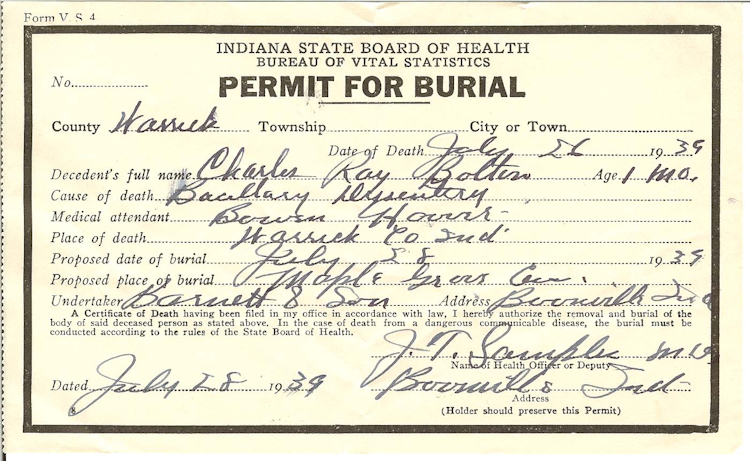 Form V. S. 4
INDIANA STATE BOARD OF HEALTH
BUREAU OF VITAL STATISTICS
No. PERMIT FOR BURIAL
County Warrick Township City or Town
Date of Death July 26 1939
Decedent's full name Charles Ray Bolton Age 1 mo.
Cause of death Bacillary Dysentery
Medical attendant
Place of death Warrick Co. Ind
Proposed date of burial July 28 1939
Proposed place of burial Maple Grove Cem.
Undertaker Barnett & Son Address Boonville Ind
A Certificate of Death having been filed in my office in accordance with law, I hereby authorize the removal and burial of the
body of said deceased person as stated above. In the case of death from a dangerous communicable disease, the burial must be
conducted according to the rules of the State Board of Health.
J. T. Samples M D
Name of Health Officer or Deputy
Dated July 28 1939 Boonville Ind
Address
8 (Holder should preserve this Permit)